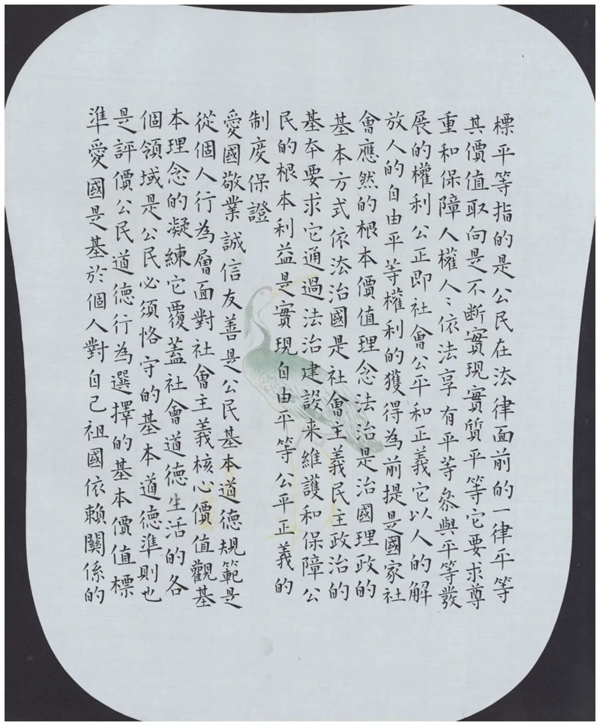 標平等指的是公民在法律面前的一律平等
其價值取向是不斷實現實質平等它要求尊
重和保障人權人〻依法享有平等參與平等發
展的權利公正即社會公平和正義它以人的解
放人的自由平等權利的獲得為前提是國家社
會應然的根本價值理念法治是治國理政的
基本方式依法治國是社會主義民主政治的
基本要求它通過法治建設来維護和保障公
民的根本利益是實現自由平等公平正義的
制度保證
愛國敬業誠信友善是公民基本道德規範是
從個人行為層面對社會主義核心價值觀基
本理念的凝練它覆蓋社會道德生活的各
個領域是公民必須恪守的基本道德準則也
是評價公民道德行為選擇的基本價值標
準愛國是基於個人對自己祖國依賴關係的